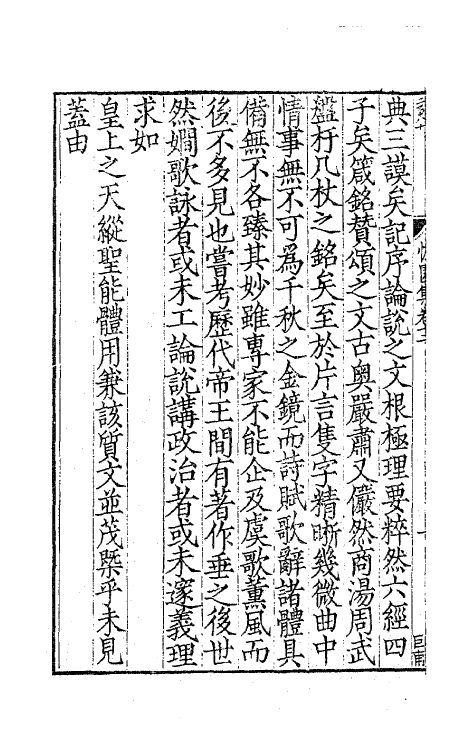 典三謨矣記序論說之文根極理要粹然六經四
子矣箴銘贊頌之文古奧嚴肅又儼然商湯周武
盤杅几杖之銘矣至於片言隻字精晰幾微曲中
情事無不可為千秋之金鏡而詩賦歌辭諸體具
備無不各臻其妙雖專家不能企及虞歌薰風而
後不多見也嘗考歷代帝王間有著作垂之後世
然嫺歌詠者或未工論說講政治者或未邃義理
求如
皇上之天縱聖能體用兼該質文並茂槩乎未見
蓋由